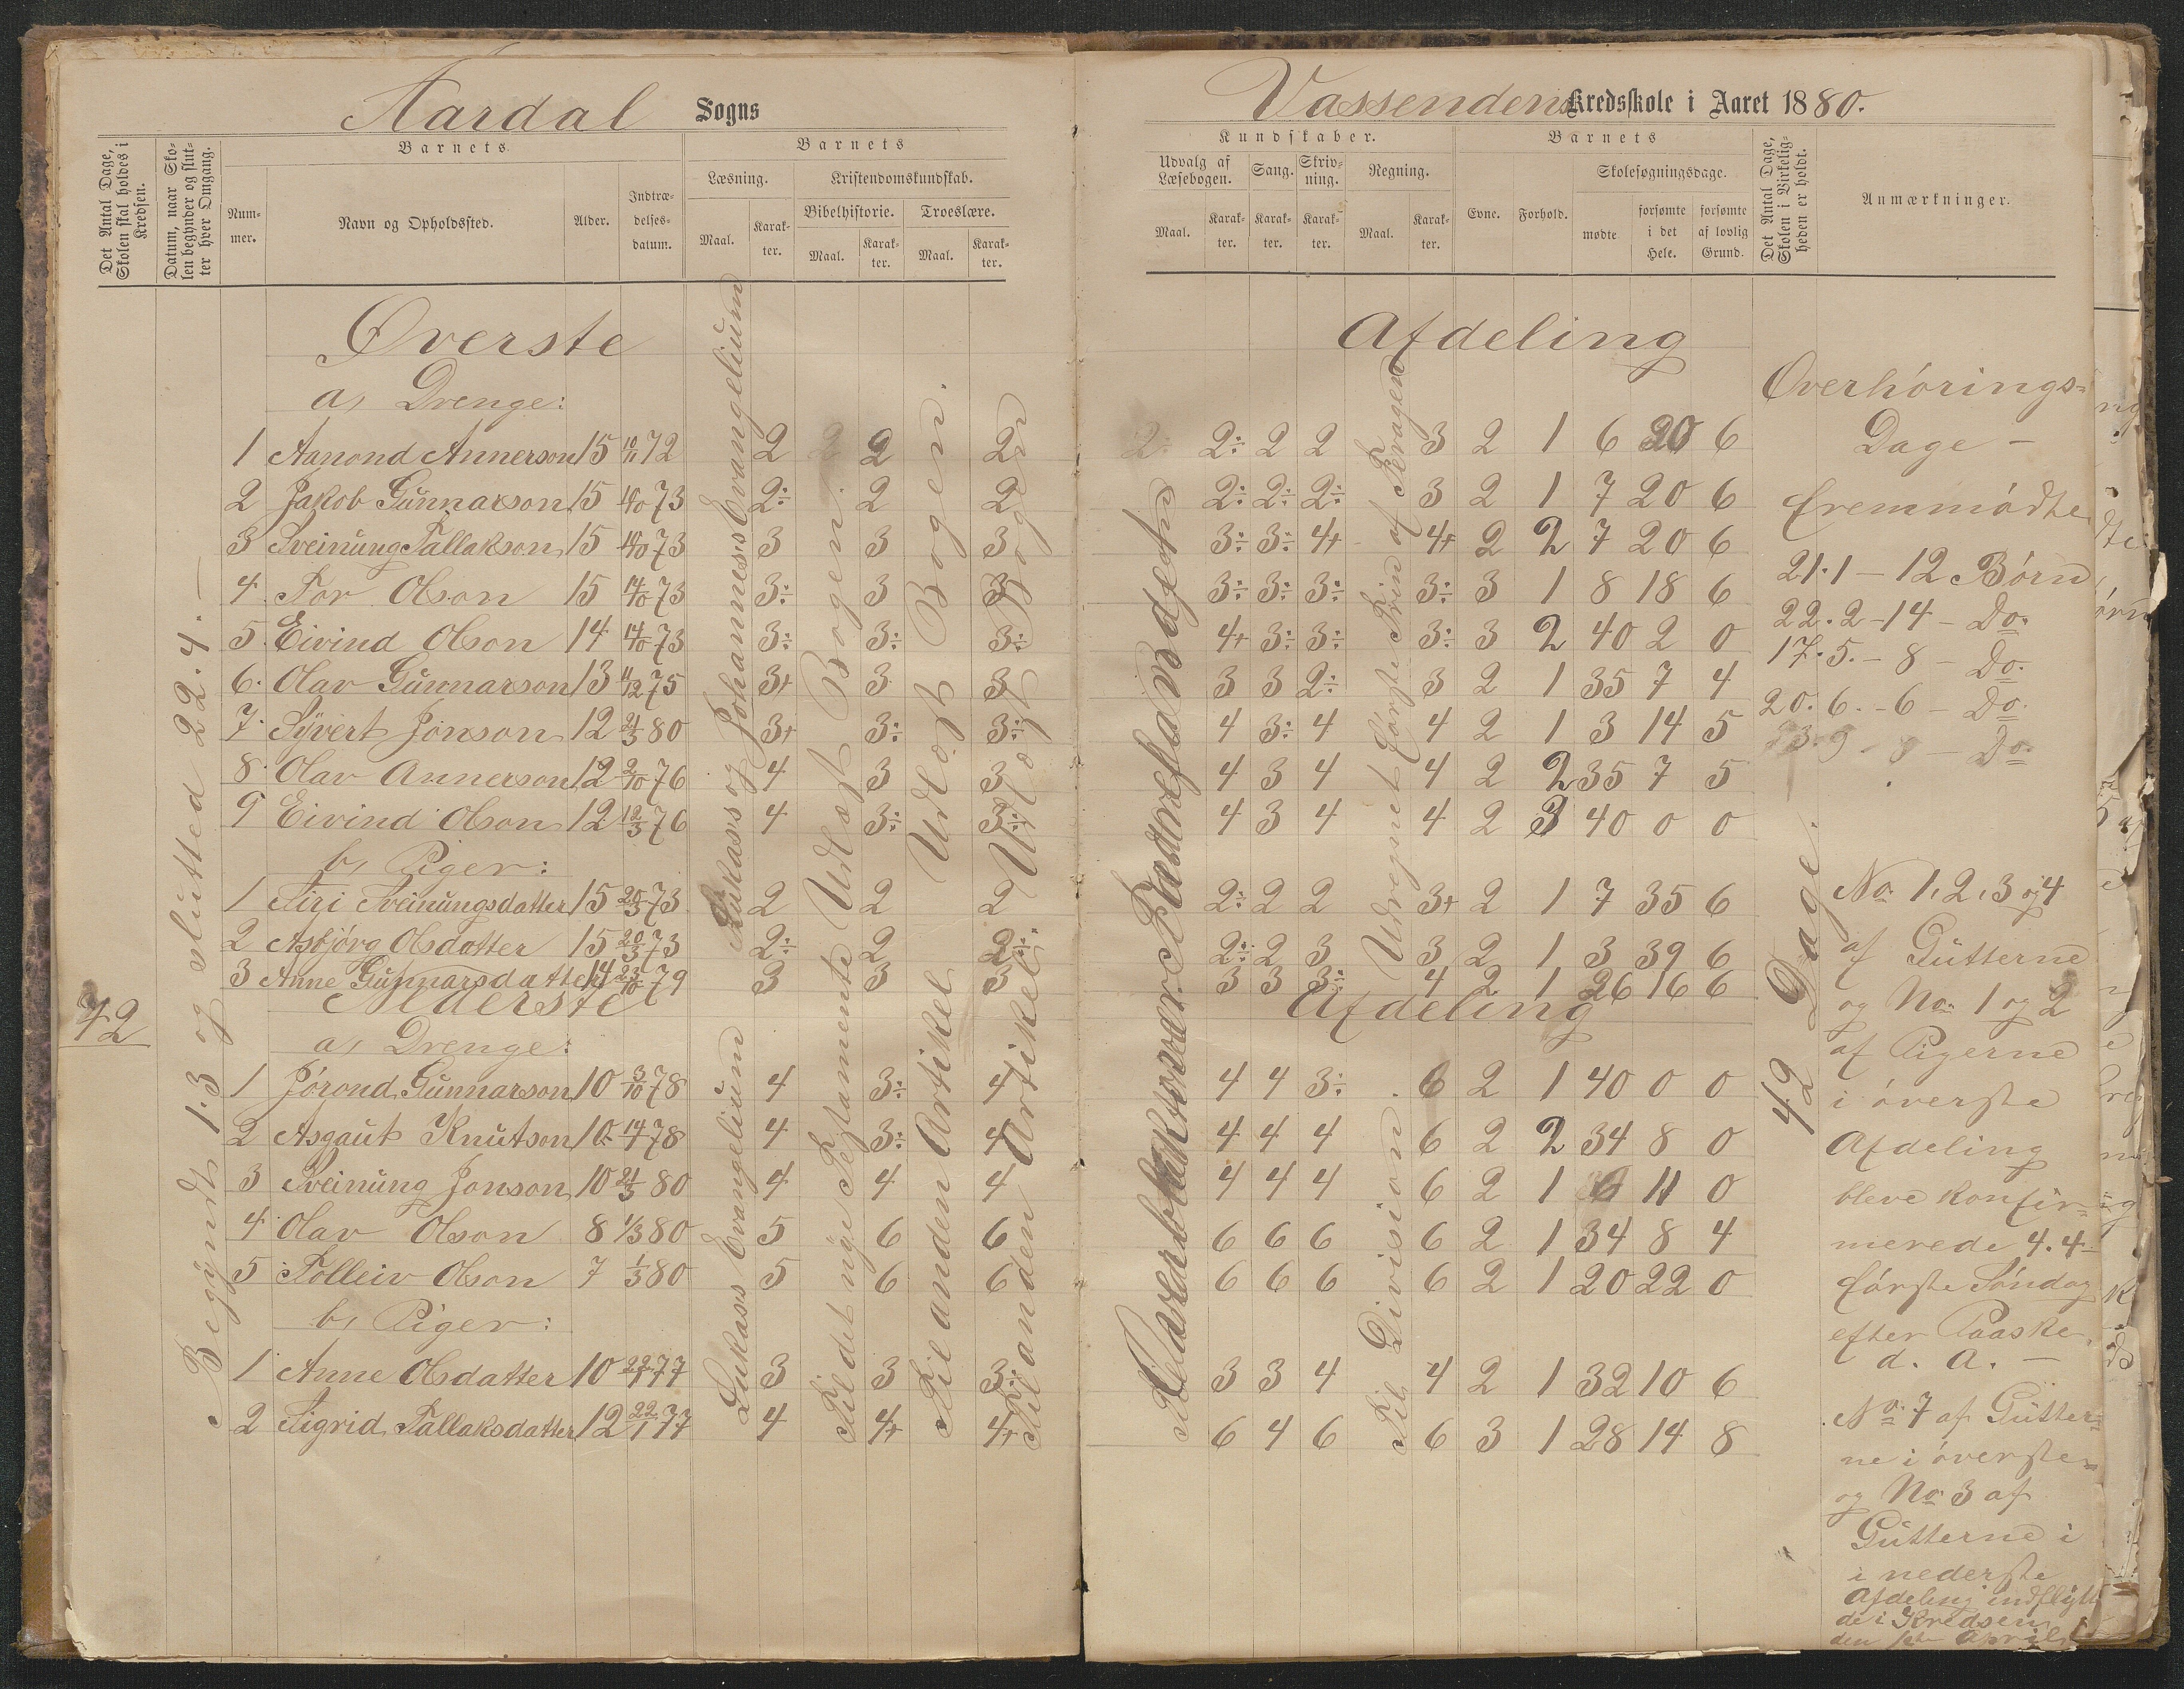 Aardal Sogns
Det Antal Dage, Skolen skal holdes i Kredsen.
Datum, naar Skolen begynder og slutter hver Omgang.
Barnets
Nummer.
Navn og Opholdssted.
Alder.
Indtrædelsesdatum.
Barnets
Læsning.
Maal.
Karakter.
Kristendomskundskab.
Bibelhistorie.
Maal.
Karakter.
Troeslære.
Maal.
Karakter.
Øverste
a, Drenge:
1 Aanond Annerson 15 10/11 72 2 2 2
2 Jakob Gunnarson 15 4/10 73 2÷ 2 2
3 Sveinung Tallakson 15 4/10 73 3 3 3
4 Tor Olson 15 14/10 73 3÷ 3 3
5 Eivind Olson 14 14/10 73 3÷ 3÷ 3÷
6 Olav Gunnarson 13 11/12 75 3+ 3 3
7 Syvert Jonson 12 21/3 80 3+ 3÷ 3÷
8 Olav Annerson 12 2/10 76 4 3 3
9 Eivind Olson 12 12/3 76 4 3÷ 3÷
b, Piger:
1 Siri Sveinungsdatter 15 20/3 73 2 2 2
2 Asbjörg Olsdatter 15 20/3 73 2÷ 2 2÷
3 Anne Gunnarsdatter 14 23/10 79 3 3 3
Nederste
a, Drenge:
1 Jörond Gunnarson 10 3/10 78 4 3÷ 4
2 Asgaut Knutson 10 14/7 78 4 3÷ 4
3 Sveinung Jonson 10 21/3 80 4 4 4
4 Olav Olson 8 1/3 80 5 6 6
5 Tolleiv Olson 7 1/3 80 5 6 6
b, Piger:
1 Anne Olsdatter 10 22/1 77 3 3 3÷
2 Sigrid Tallaksdatter 12 22/1 77 4 4+ 4+
42
Begyndt 1.3 og slutted 22.4.—
Lukass og Johannes's Evangelium
Lukass Evangelium
Til det nye Testamente Udlæst Bogen.
Til anden Artikel Udlæst Bogen.
Til anden Artikel Udlæst Bogen
Vassendens Kredsskole i Aaret 1880.
Kundskaber.
Udvalg af Læsebogen.
Maal.
Karakter.
Sang.
Karakter.
Skrivning.
Karakter.
Regning.
Maal.
Karakter.
Barnets
Evne.
Forhold.
Skolesøgningsdage.
mødte
forsømte i det Hele.
forsømte af lovlig Grund.
Det Antal Dage, Skolen i Virkeligheden er holdt.
Anmærkninger.
Afdeling
2÷ 2 2 3 2 1 6 20 6
2÷ 2÷ 2÷ 3 2 1 7 20 6
3÷ 3÷ 4+ 4+ 2 2 7 20 6
3÷ 3÷ 3÷ 3÷ 3 1 8 18 6
4+ 3÷ 3÷ 3÷ 3 2 40 2 0
3 3 2÷ 3 2 1 35 7 4
4 3÷ 4 4 2 1 3 14 5
4 3 4 4 2 2 35 7 5
4 3 4 4 2 3 40 0 0
2÷ 2 2 3+ 2 1 7 35 6
2÷ 2 3 3 2 1 3 39 6
3 3 3÷ 4 2 1 26 16 6
Afdeling
4 4 3÷ 6 2 1 40 0 0
4 4 4 6 2 2 34 8 0
4 4 4 6 2 1 6 11 0
6 6 6 6 2 1 34 8 4
6 6 6 6 2 1 20 22 0
3 3 4 4 2 1 32 10 6
6 4 6 6 3 1 28 14 8
Udregnet første Trin af
Til Division
42 Dage.
Overhörings=
Dage —
fremmödte
21.1 — 12 Börn
22.2 - 14 - Do.
17.5. - 8 - Do.
20.6. - 6 - Do.
23.9 - 8 - Do.
No. 1, 2, 3 og 4
af Gutterne
og No. 1 og 2
af Pigerne
i överste
Afdeling
bleve konfir=
merede 4.4
förste Söndag
efter Paaske
d. A. —
No. 7 af Gutter=
ne i överste=
og No 3 af
Gutterne i
i nederste
Afdeling indflytt
de i Kredsen
den 1ste April